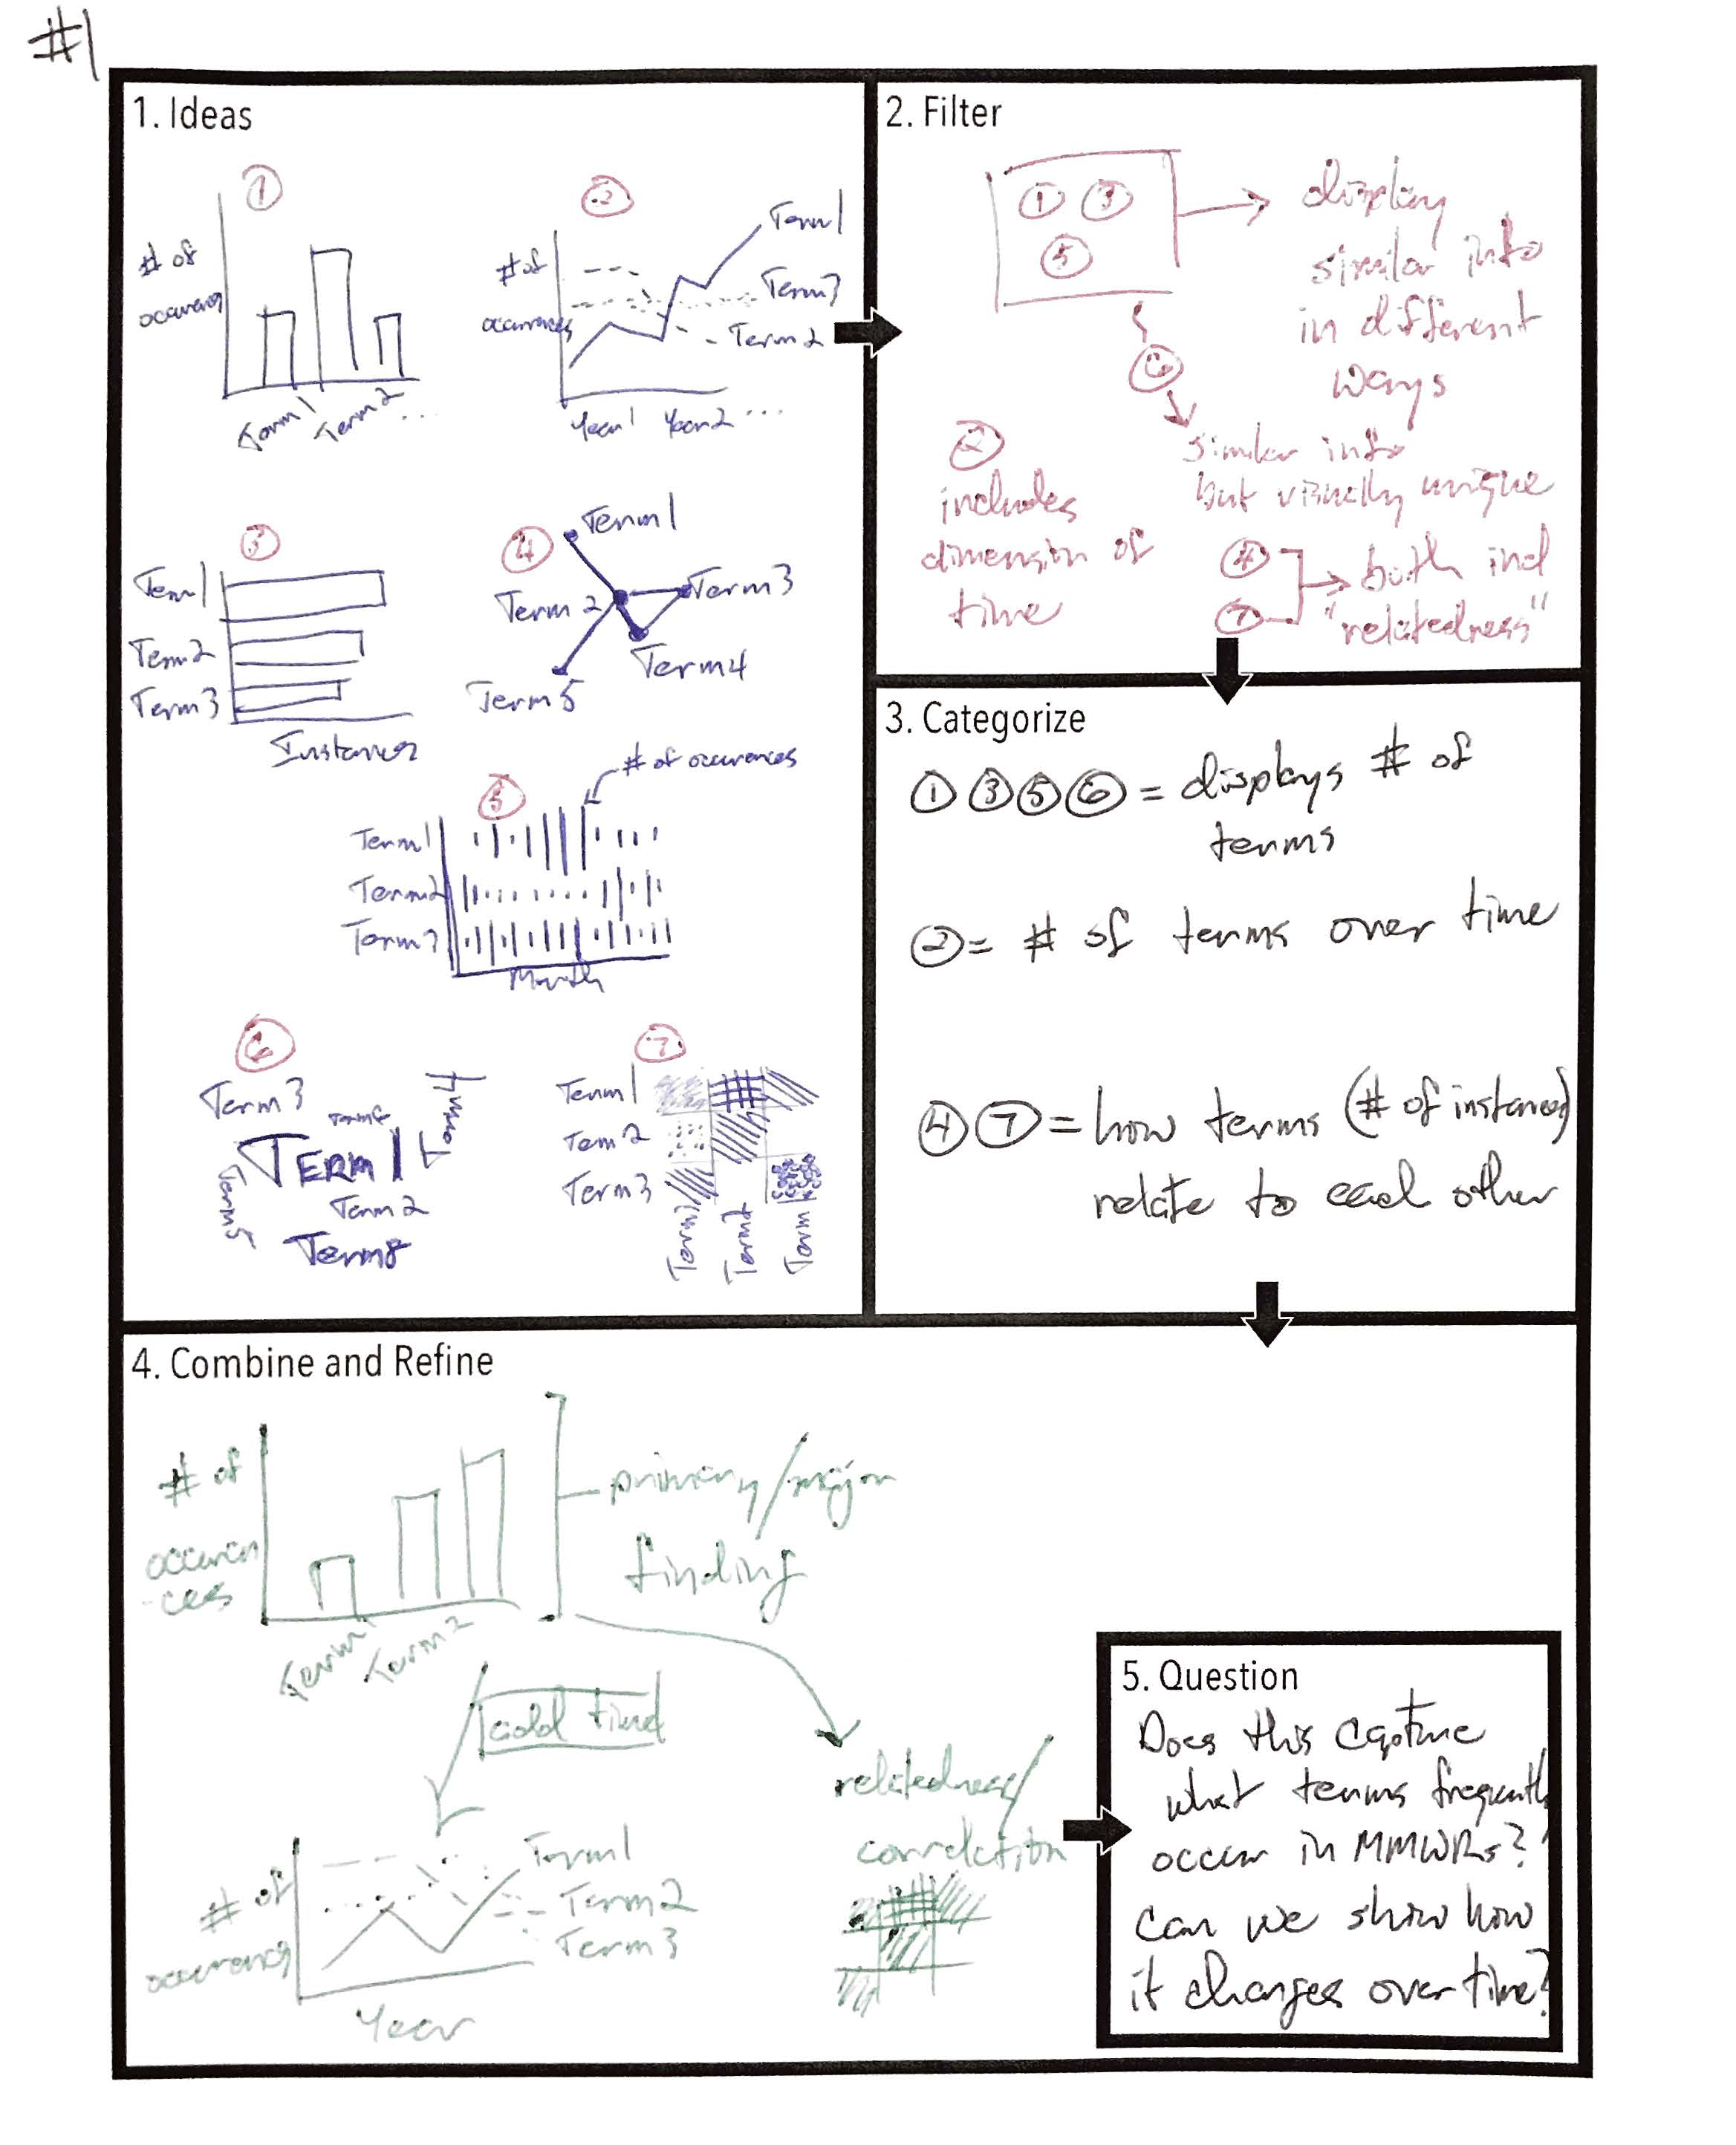 #1
1. Ideas
①
# of
②
# of
occurrences
Term1
Term3
Term2
Term1
Term2
...
Year1 Year2 ...
③
Term1
Term2
Term3
④
Term1
Term 2
Term3
Term4
Term5
# of occurences
⑤
Term1
Term2
Month
⑥
Term 3
TERM1
Term 2
Term8
Term5
⑦
Term1
Term2
Term3
Term2
Term1
2. Filter
① ③
⑤
display
similar info
in different
ways
⑥
similar info
but visually unique
②
includes
dimension of
time
④
⑦
both incl
"relatedness"
3. Categorize
① ③ ⑤ ⑥ = displays # of
terms
② = # of terms over time
④ ⑦ = how terms (# of instances)
relate to each other
4. Combine and Refine
# of
occuren
-ces
Term1
Term2
primary/major
finding
add time
# of
Term1
Term2
Term3
Year
relatedness/
correlation
5. Question
Does this capture
what terms frequently
occur in MMWRs?
Can we show how
it changes over time?